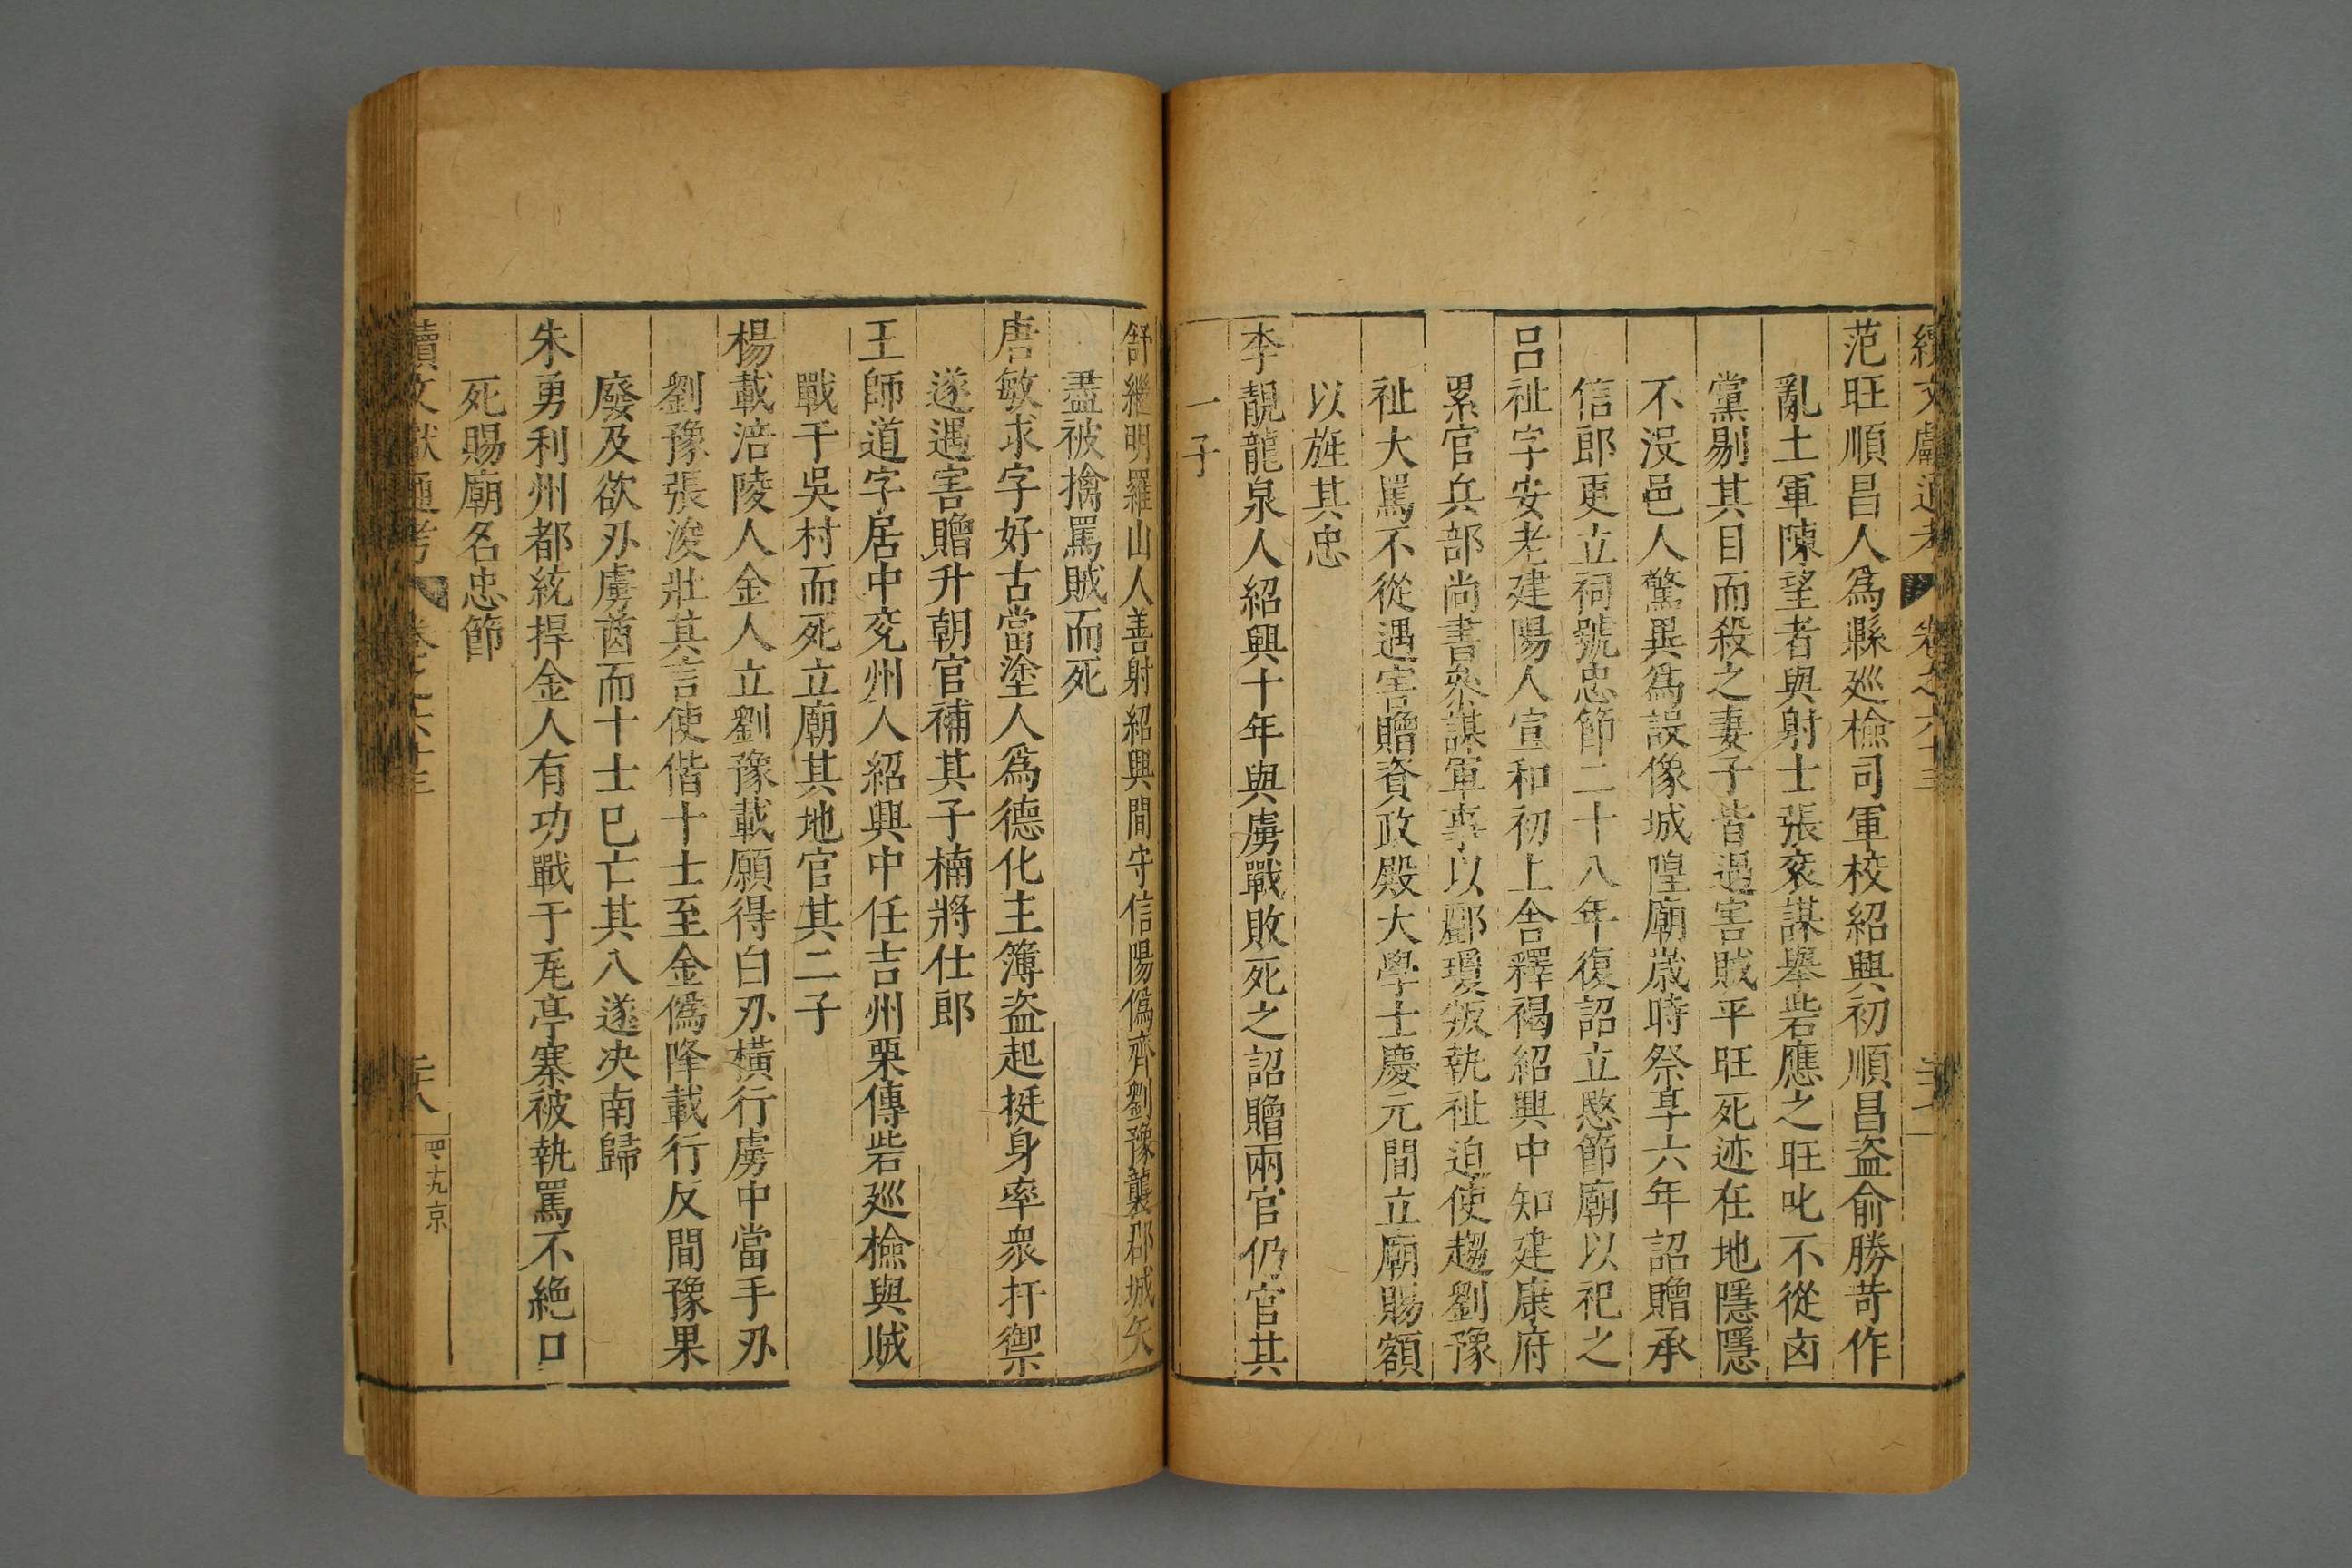 續文獻通考 卷之六十三
范旺順昌人爲縣廵檢司軍校紹興初順昌盗俞勝苛作
亂土軍陳望者與射士張衮謀舉砦應之旺叱不從囟
黨剔其目而殺之妻子皆遇害賊平旺死迹在地隱隱
不没邑人驚異爲設像城隍廟嵗時祭享六年詔贈承
信郎更立祠號忠節二十八年復詔立愍節廟以祀之
吕祉字安老建陽人宣和初上舎釋褐紹興中知建康府
累官兵部尚書叅謀軍事以酈瓊叛執祉迫使趨劉豫
祉大罵不從遇害贈資政殿大學士慶元間立廟賜額
以旌其忠
李靚龍泉人紹興十年與虜戰敗死之詔贈兩官仍官其
一子
舒繼明羅山人善射紹興間守信陽僞齊劉豫襲郡城矢
盡被擒罵賊而死
唐敏求字好古當塗人爲德化主簿盗起挺身率衆扞禦
遂遇害贈升朝官補其子楠將仕郎
王師道字居中兖州人紹興中任吉州栗傳砦廵檢與賊
戰于吳村而死立廟其地官其二子
楊載涪陵人金人立劉豫載願得白刃橫行虜中當手刃
劉豫張浚壯其言使偕十士至金僞降載行反間豫果
廢及欲刃虜酋而十士巳亡其八遂决南歸
朱勇利州都統捍金人有功戰于兎亭寨被執罵不絶口
死賜廟名忠節
續文獻通考 卷之六十三 二十八
四九京